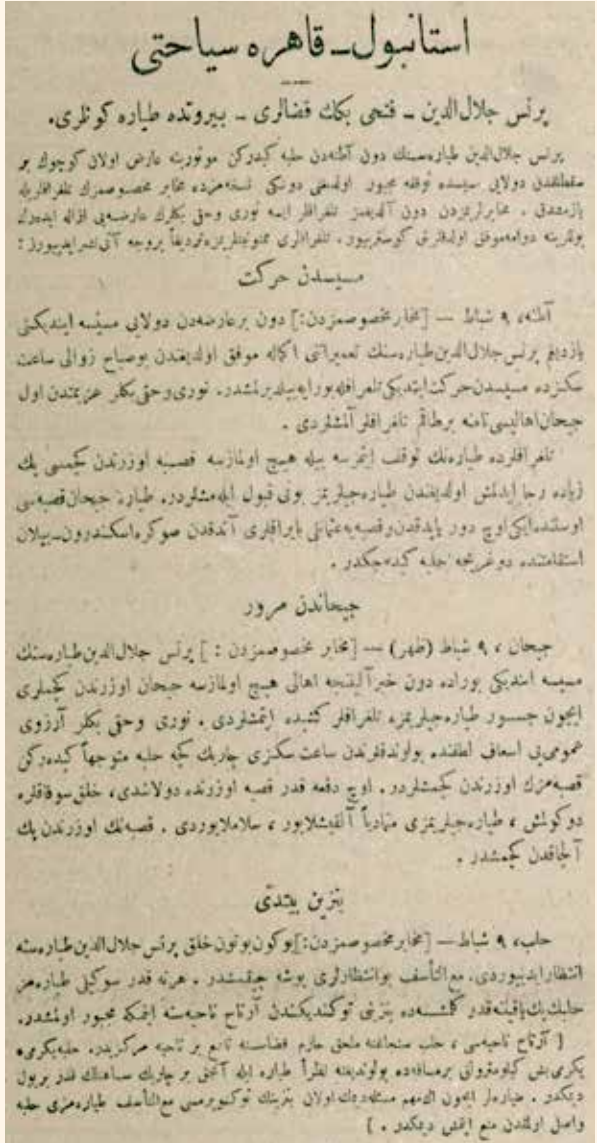 استانبول ـ قاهره سیاحتی
پرنس جلال‌الدین ـ فتحی بكك قضالری ـ بیروتده طیاره كونلری.
پرنس جلال‌الدین طیاره‌سنك دون آطنه‌دن حلبه كیدركن موتورینه عارض اولان كوچوك بر
سقطلقدن دولایی مسیسده توقفه مجبور اولدیغنی دونكی نسخه‌مزده مخابر مخصوصمزك تلغرافلریله
یازمشدق . مخابرلرمزدن دون آلدیغمز تلغرافلر ایسه نوری وحقی بكلرك عارضه‌یی ازاله ایده‌رك
یوللرینه دوامه موفق اولدقلرینی كوستریور. تلغرافلری ممنونیتلرمزه تردیفاً بروجه آتی نشر ایدییورز :
مسیسدن حركت
آطنه، ۹ شباط — [مخابر مخصوصمزدن:] دون بر عارضه‌دن دولایی مسیسه ایندیكنی
یازدیغم پرنس جلال‌الدین طیاره‌سنك تعمیراتنی اكماله موفق اولدیغندن بو صباح زوالی ساعت
سكزده مسیسدن حركت ایتدیكی تلغرافله بورایه بیلدیرلمشدر. نوری وحقی بكلر عزیمتدن اول
جیحان اهالیسی نامنه برطاقم تلغرافلر آلمشلردی .
تلغرافلرده طیاره‌نك توقف ایتمزسه بیله هیچ اولمازسه قصبه اوزرندن كچمسی پك
زیاده رجا ایدلمش اولدیغندن طیاره‌جیلریمز بونی قبول ایله‌مشلردر. طیاره جیحان قصبه‌سی
اوستنده ایكی اوچ دور یاپدقدن وقصبه‌یه عثمانلی بایراقلری آتدقدن صوكره اسكندرون ـ بیلان
استقامتنده دوغریجه حلبه كیده‌جكدر .
جیحاندن مرور
جیحان ، ۹ شباط (ظهر) — [مخابر مخصوصمزدن : ] پرنس جلال‌الدین طیاره‌سنك
مسیسه ایندیكی بوراده دون خبر آلینجه اهالی هیچ اولمازسه جیحان اوزرندن كچملری
ایچون جسور طیاره‌جیلریمزه تلغرافلر كشیده ایتمشلردی . نوری وحقی بكلر آرزوی
عمومی‌یی اسعاف لطفنده بولوندقلرندن ساعت سكزی چاریك كچه حلبه متوجهاً كیدركن
قصبه‌مزك اوزرندن كچمشلردر . اوچ دفعه قدر قصبه اوزرنده دولاشدی، خلق سوقاقلره
دوكولمش ، طیاره‌جیلریمزی متمادیاً آلقیشلایور ، سلاملایوردی . قصبه‌نك اوزرندن پك
آلچاقدن كچمشدر .
بنزین بیتدی
حلب، ۹ شباط — [مخابر مخصوصمزدن:] بوكون بوتون خلق پرنس جلال‌الدین طیاره‌سنه
انتظار ایدییوردی. مع‌التأسف بو انتظارلری بوشه چیقمشدر . هرنه قدر سوكیلی طیاره‌مز
حلبك پك یاقیننه قدر كلمشسه‌ده بنزینی توكندیكندن آرتاح ناحیه‌سنه اینمكه مجبور اولمشدر.
[ آرتاح ناحیه‌سی ، حلب سنجاغنه ملحق حارم قضاسنه تابع بر ناحیه مركزیدر. حلبه یكرمی،
یكرمی بش كیلومترولق برمسافه‌ده بولوندیغنه نظراً طیاره ایله آنجق بر چاریك ساعتلك قدر بر یول
دیمكدر . طیاره‌لر ایچون اك مهم مسئله دیمك اولان بنزینك توكنیویرمسی مع‌التأسف طیاره‌مزی حلبه
واصل اولمقدن منع ایتمش دیمكدر . ]